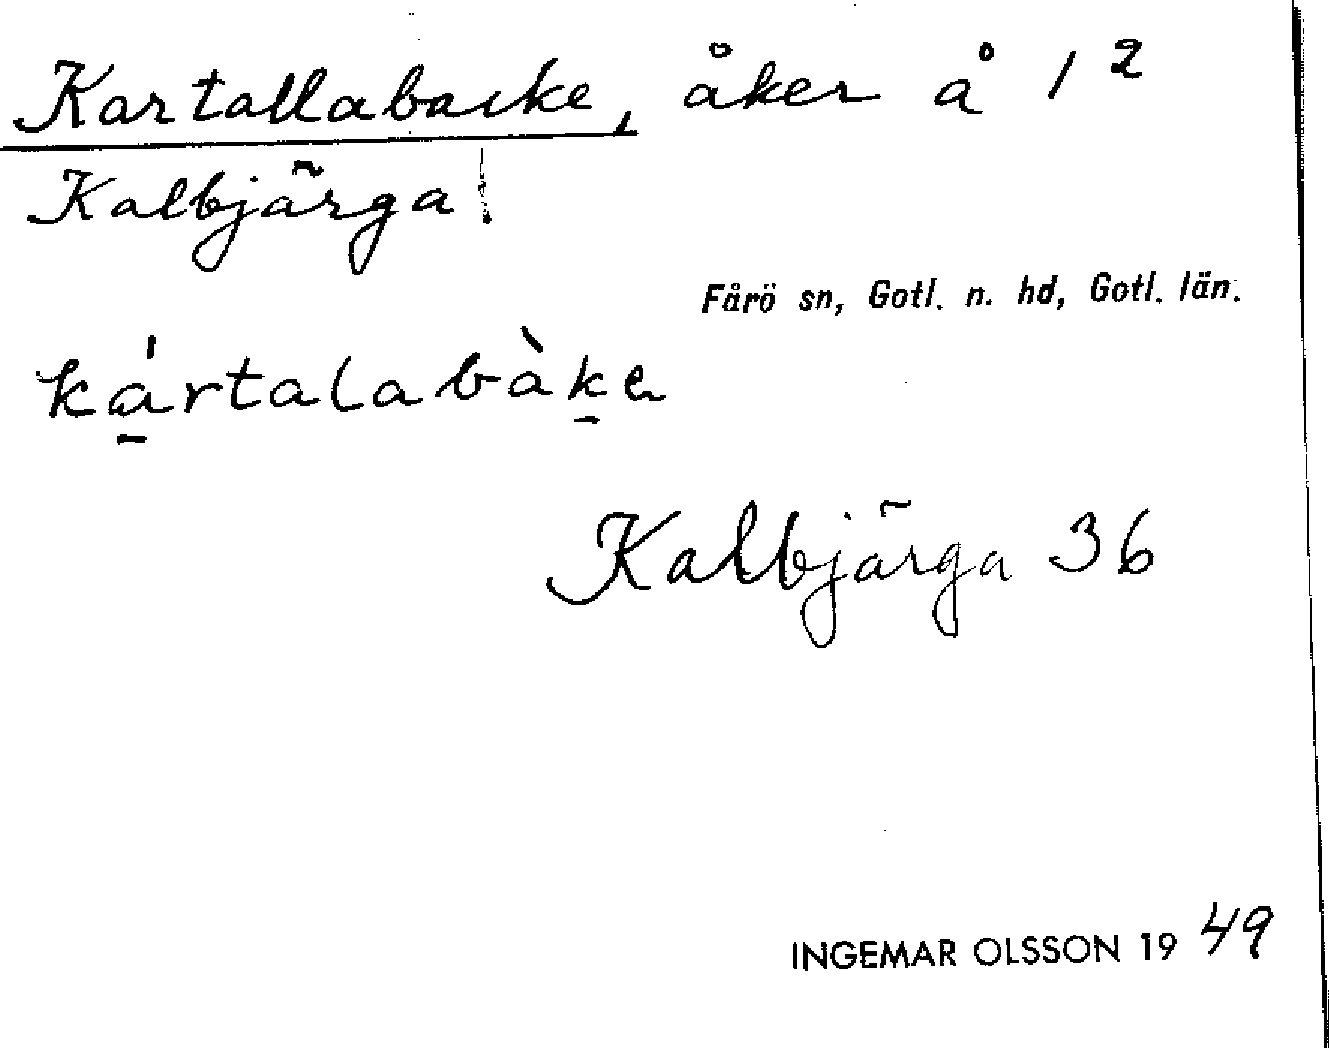 Kartallabacke, åker å 1²
Kalbjärga
Fårö sn, Gotl. n. hd, Gotl. län.
ká̱rtalabàḵe
Kalbjärga 36
INGEMAR OLSSON 19 49